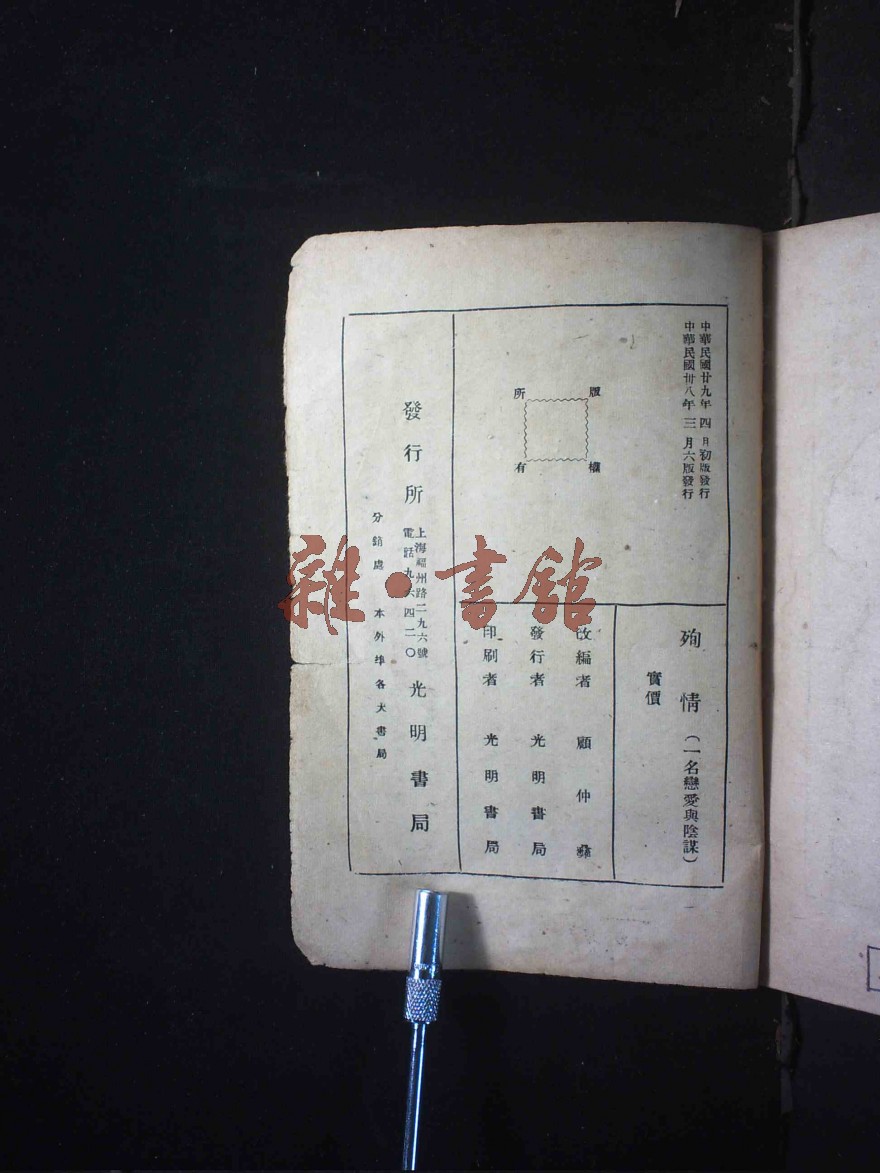 中華民國廿九年四月初版發行
中華民國卅八年三月六版發行
版權所有
殉情（一名戀愛與陰謀）
實價
改編者 顧仲彝
發行者 光明書局
印刷者 光明書局
發行所 上海福州路二九六號 電話九六四二〇 光明書局
分銷處 本外埠各大書局
雜·書館